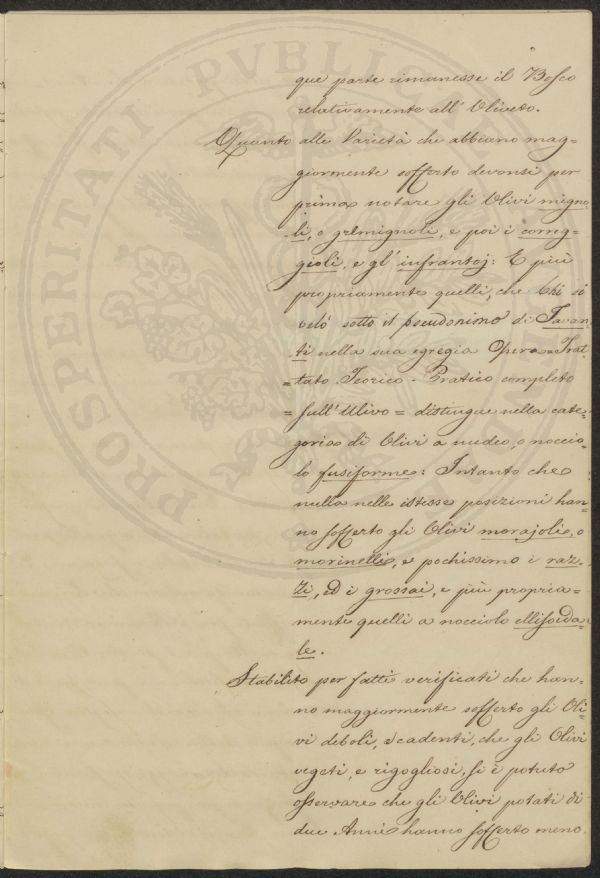 que parte rimanesse il Bosco
relativamente all' Oliveto.
Quanto alle Varietà che abbiano mag=
giormente sofferto devonsi per
prima notare gli Olivi migno
li, o gremignoli, e poi i correg=
gioli, e gl' infrantoj: E più
propriamente quelli, che Chi si
velò sotto il pseudonimo di Tavan
ti nella sua egregia Opera = Trat
= tato Teorico - Pratico completo
= sull' Ulivo = distingue nella cate=
goria di Olivi a nucleo, o noccio=
lo fusiforme: Intanto che
nulla nelle istesse posizioni han=
no sofferto gli Olivi morajoli, o
morinelli, e pochissimo i raz=
zi, ed i grossai, e più propria=
mente quelli a nocciolo ellisoida=
le.
Stabilito per fatti verificati che han=
no maggiormente sofferto gli Oli=
vi deboli, e cadenti, che gli Olivi
vegeti, e rigogliosi, si è potuto
osservare che gli Olivi potati di
due Anni hanno sofferto meno
PROSPERITATI PVBLICAE